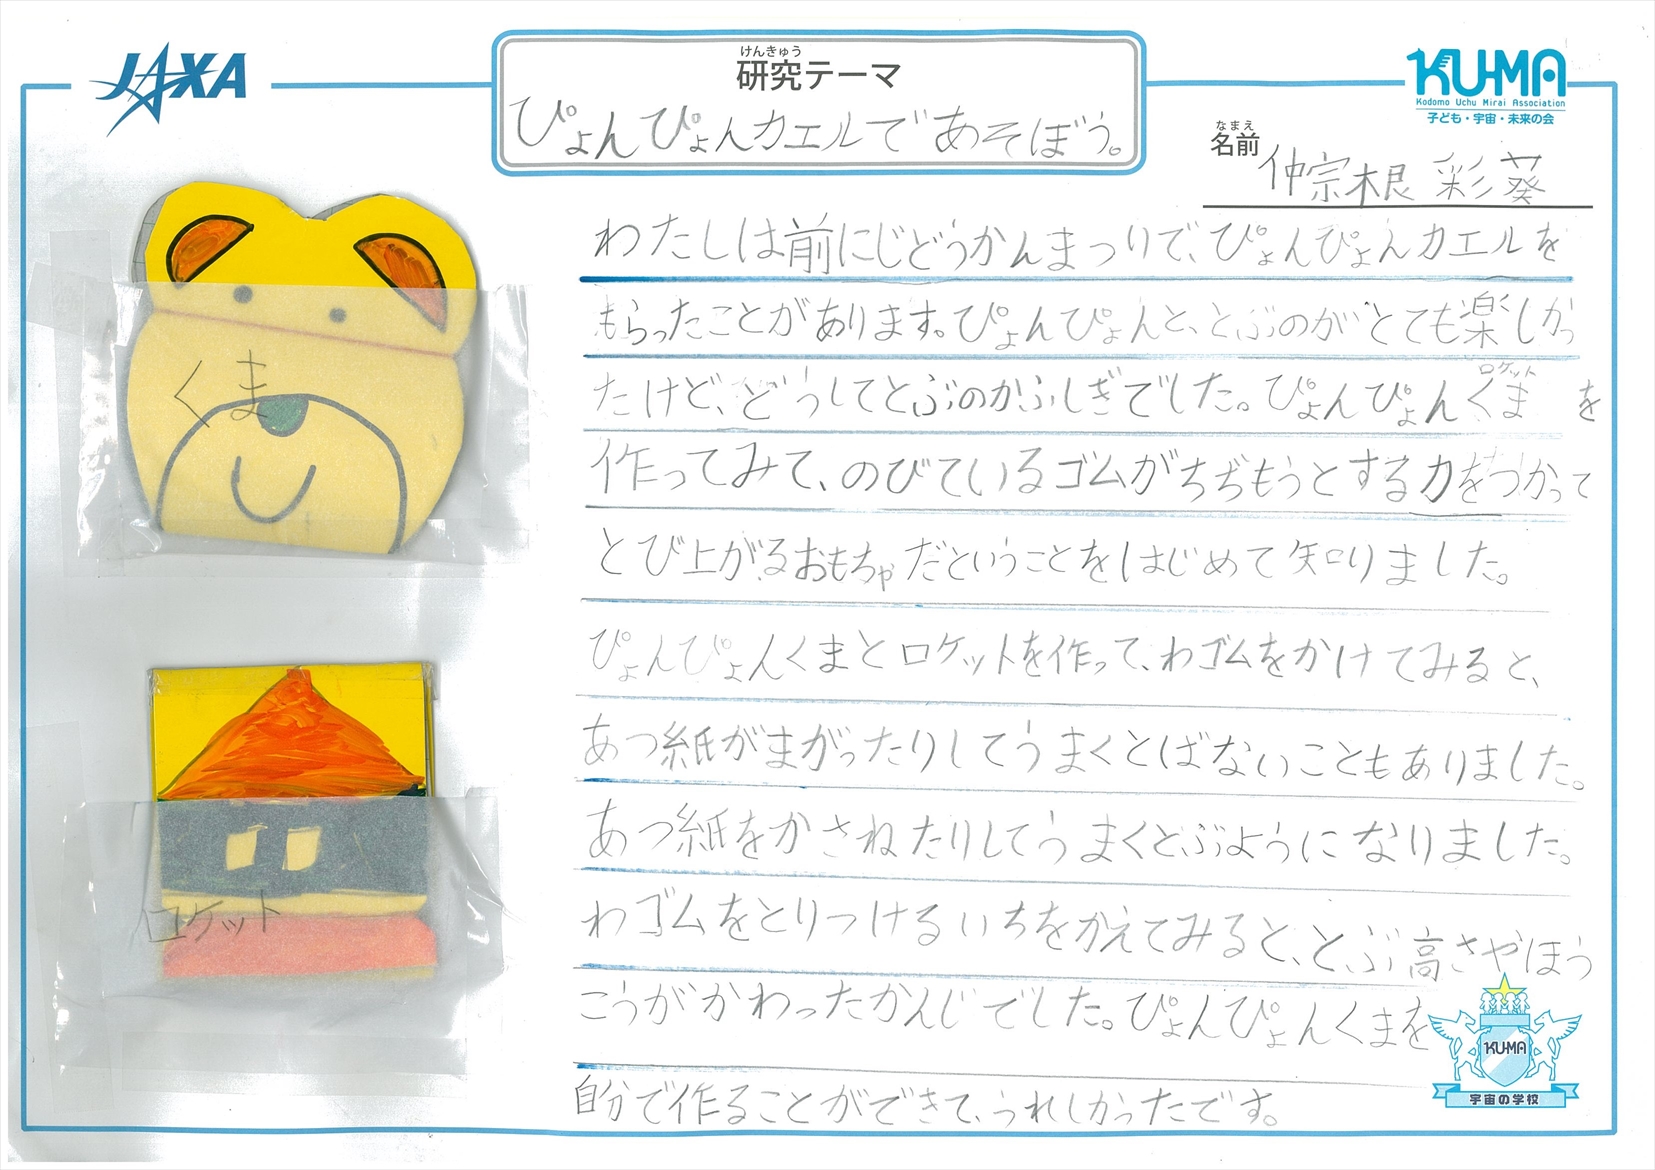 JAXA
けんきゅう
研究テーマ
ぴょんぴょんカエルであそぼう。
KU-MA
Kodomo Uchu Mirai Association
子ども・宇宙・未来の会
なまえ
名前
仲宗根 彩葵
わたしは前にじどうかんまつりで、ぴょんぴょんカエルを
もらったことがあります。ぴょんぴょんと、とぶのがとても楽しかっ
たけど、どうしてとぶのかふしぎでした。ぴょんぴょんくまを
ロケット
作ってみて、のびているゴムがちぢもうとする力をつかって
とび上がるおもちゃだということをはじめて知りました。
ぴょんぴょんくまとロケットを作って、わゴムをかけてみると、
あつ紙がまがったりしてうまくとばないこともありました。
あつ紙をかさねたりしてうまくとぶようになりました。
わゴムをとりつけるいちをかえてみると、とぶ高さやほう
こうがかわったかんじでした。ぴょんぴょんくまを
自分で作ることができて、うれしかったです。
くま
ロケット
KU-MA
宇宙の学校